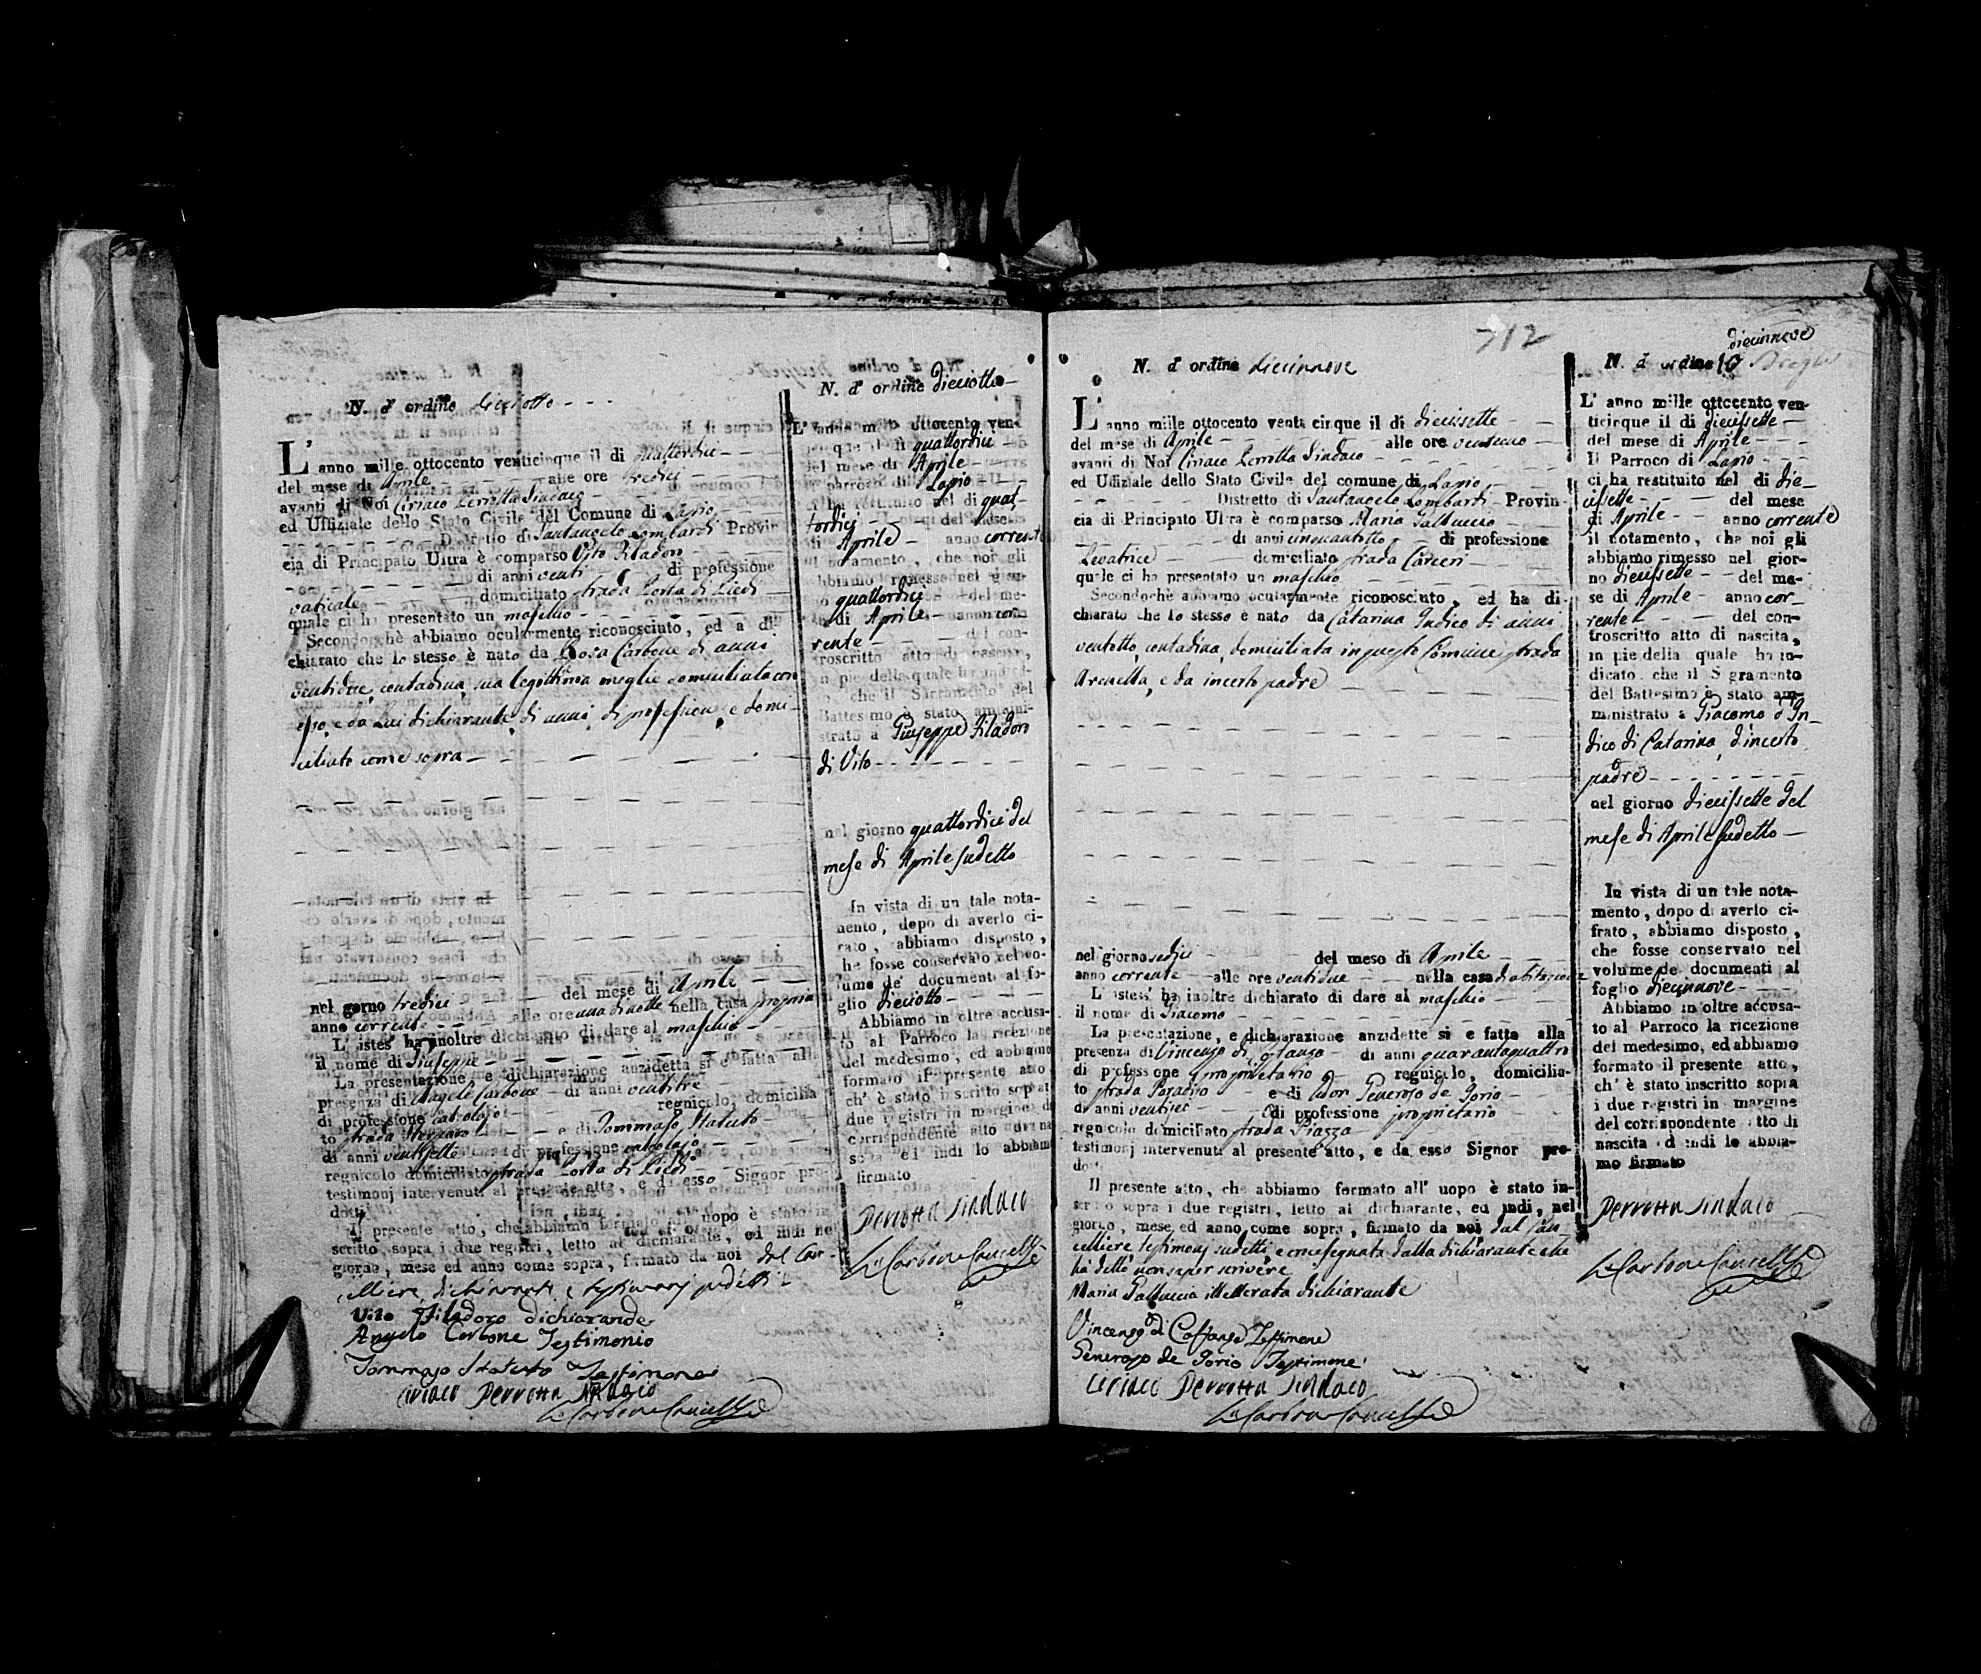 N. d' ordine dieciotto
L' anno mille ottocento venticinque il di quattordici
del mese di Aprile alle ore tredici
avanti di Noi Ciriaco Perrotta Sindaco
ed Uffiziale dello Stato Civile del Comune di Lapio
Distretto di Santangelo Lombardi Provin
cia di Principato Ultra è comparso Vito Filadoro
di anni venti di professione
vaticale domiciliato strada Porta di Piedi
quale ci ha presentato un maschio
Secondocchè abbiamo ocularmente riconosciuto, ed a di
chiarato che lo stesso è nato da Rosa Carbone di anni
ventidue, contadina, sua legittima moglie domiciliata con
esso, e da Lui dichiarante, di anni, di professione, e domi-
ciliato come sopra
nel gorno tredici del mese di Aprile
anno corrente alle ore una di notte nella casa propria
L' istes' ha inoltre dichiarato di dare al maschio
il nome di Giuseppe
La presentazione, e dichiarazione anzidetta si è fatta alla
presenza di Angelo Carbone di anni ventitre
di professione regnicolo, domicilia
to strada e di Tommaso Statuto
di anni ventisette di professione
regnicolo domiciliato strada Porta di Piedi
testimonj intervenuti al presente atto, e di esso Signor pro-
dotti
Il presente atto, che abbiamo formato all' uopo è stato in
scritto sopra i due registri, letto al dichiarante, ed indi nel
giorno, mese ed anno come sopra, firmato da noi dal Can-
celliere, dichiarante, e testimonj sudetti
Vito Filadoro dichiarande
Angelo Carbone Testimonio
Tommaso Statuto Testimone
Ciriaco Perrotta Sindaco
Carbone Cancelliere
N. d' ordine dieciotto
L' anno mille ottocento ven
ticinque il di quattordici
del mese di Aprile
Il parroco di Lapio
ci ha restituito nel di quat
tordici del mese
di Aprile anno corrente
il notamento, che noi gli
abbiamo rimesso nel gior-
no quattordici del me-
se di Aprile anno cor
rente del con-
troscritto atto di nascita,
in pie della quale ha indi-
cato, che il Sacramento del
Battesimo è stato ammini-
strato a Giuseppe Filadoro
di Vito
nel giorno quattordici del
mese di Aprile sudetto
In vista di un tale nota-
mento, dopo di averlo ci-
frato, abbiamo disposto,
che fosse conservato nel vo-
lume de' documenti al fo-
glio dieciotto
Abbiamo in oltre accusa-
to al Parroco la ricezione
del medesimo, ed abbiamo
formato il presente atto
ch' è stato inscritto sopra i
due registri in margine del
corrispondente atto di na
scita ed indi lo abbiamo
firmato
Perrotta Sindaco
Carbone Cancelliere
712
N. d' ordine diecinnove
L' anno mille ottocento venti cinque il di diecissette
del mese di Aprile alle ore ventuno
avanti di Noi Ciriaco Perrotta Sindaco
ed Uffiziale dello Stato Civile del comune di Lapio
Distretto di Santangelo Lombardi Provin-
cia di Principato Ultra è comparso Maria Galluccio
di anni cinquantotto di professione
Levatrice domiciliato strada Carceri
quale ci ha presentato un maschio
Secondochè abbiamo ocularmente riconosciuto, ed ha di-
chiarato che lo stesso è nato da Catarina Indico di anni
ventotto, contadina, domiciliata in questo Comune strada
Arenella, e da incerto padre
nel giorno sedici del meso di Aprile
anno corrente alle ore ventidue nella casa d'abitazione
L' istess' ha inoltre dichiarato di dare al maschio
il nome di Giacomo
La presentazione, e dichiarazione anzidette si è fatta alla
presenza di Vincenzo di Costanzo di anni quarantaquattro
di professione proprietario regnicolo, domicilia-
to strada Paradiso e di Don Generoso de Iorio
di anni ventisei di professione proprietario
regnicolo domiciliato strada Piazza
testimonj intervenuti al presente atto, e da esso Signor pro-
dotti
Il presente atto, che abbiamo formato all' uopo è stato in-
scritto sopra i due registri, letto al dichiarante, ed indi, nel
giorno, mese, ed anno, come sopra, firmato da noi, dal Can
celliere, testimonj sudetti, e crocesegnata dalla dichiarante che
ha detto non saper scrivere
Maria Galluccio illetterata dichiarante
Vincenzo di Costanzo Testimone
Generoso de Iorio Testimone
Ciriaco Perrotta Sindaco
Carbone Cancelliere
diecinnove
N. d' ordine 19
L' anno mille ottocento ven-
ticinque il di diecissette
del mese di Aprile
Il Parroco di Lapio
ci ha restituito nel di die-
cissette del mese
di Aprile anno corrente
il notamento, che noi gli
abbiamo rimesso nel gior-
no diecissette del me-
se di Aprile anno cor-
rente del con-
troscritto atto di nascita,
in pie della quale ha in-
dicato, che il Sagramento
del Battesimo è stato am-
ministrato a Giacomo d'In-
dico di Catarina, d'incerto
padre
nel giorno diecissette del
mese di Aprile sudetto
In vista di un tale nota-
mento, dopo di averlo ci-
frato, abbiamo disposto,
che fosse conservato nel
volume de' documenti al
foglio diecinnove
Abbiamo in oltre accusa-
to al Parroco la ricezione
del medesimo, ed abbiamo
formato il presente atto,
ch' è stato inscritto sopra
i due registri in margine
del corrispondente atto di
nascita ed indi lo abbia-
mo firmato
Perrotta Sindaco
Carbone Cancelliere